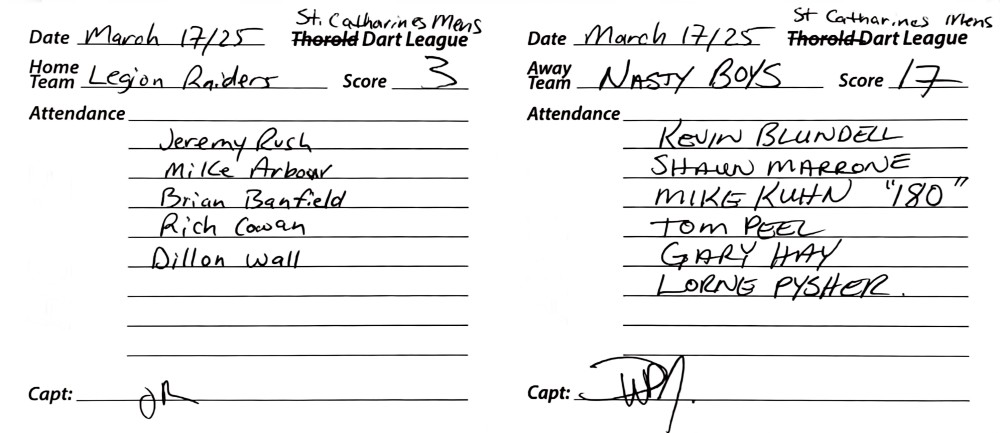 St. Catharines Mens
Date March 17/25 Thorold Dart League
Home Team Legion Raiders Score 3
Attendance
Jeremy Rush
Mike Arbour
Brian Banfield
Rich Cowan
Dillon Wall
Capt: JR
St Catharines Mens
Date March 17/25 Thorold Dart League
Away Team NASTY BOYS Score 17
Attendance
KEVIN BLUNDELL
SHAWN MARRONE
MIKE KUHN "180"
TOM PEEL
GARY HAY
LORNE PYSHER.
Capt: